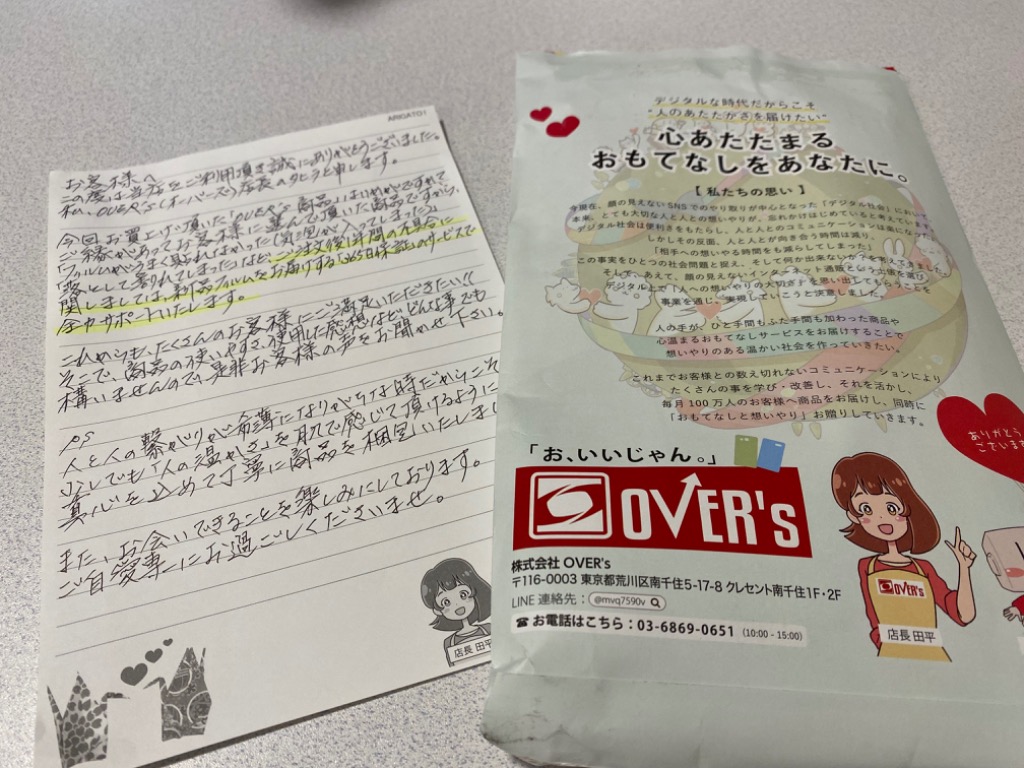 ARIGATO!
お客様へ
この度は当店をご利用頂き誠にありがとうございました。
私、OVER's(オーバーズ)店長のタヒラと申します。
今回お買上げ頂いた「OVER's商品」はいわゆるがずれて
ご縁があってお客様に選んで頂いた商品ですから、
「フィルムがうまく貼れなかった(気泡が入ってしまった)」
「落として割れてしまった」など、ご注文後1年間の欠品に
関しましては、新品フィルムをお届けする「365日保証」のサービスで
全力サポートいたします。
これからも、たくさんのお客様にご満足いただきたい!!
そこで、商品の使いやすさ、使用した感想などどんな事でも
構いませんので、是非お客様の声をお聞かせ下さい。
PS
人と人の繋がりが希薄になりがちな時だからこそ
少しでも「人の温かさ」を肌で感じて頂けるように
真心を込めて丁寧に商品を梱包いたしまし
また、お会いできることを楽しみにしております。
ご自愛専一にお過ごしくださいませ。
店長 田平
デジタルな時代だからこそ
"人のあたたかさを届けたい"
心あたたまる
おもてなしをあなたに。
【 私たちの思い 】
今現在、顔の見えないSNSでのやり取りが中心となった「デジタル社会」において
本来、とても大切な人と人との想いやりが、忘れかけはじめていると考えています
デジタル社会は便利さをもたらし、人と人とのコミュニケーションは楽になり
しかしその反面、人と人とが向き合う時間は減り、
「相手への想いやる時間をも減らしてしまった」
この事実をひとつの社会問題と捉え、そして何か出来ないか?を考えてきました
そして、あえて、顔の見えないインターネット通販という立場を選び
デジタル上で「人への想いやりの大切さ」を思い出してもらうことを
事業を通じ、実現していこうと決意しました。
人の手が、ひと手間もふた手間も加わった商品や
心温まるおもてなしサービスをお届けすることで
想いやりのある温かい社会を作っていきたい。
これまでお客様との数え切れないコミュニケーションにより
たくさんの事を学び・改善し、それを活かし、
毎月100万人のお客様へ商品をお届けし、同時に
「おもてなしと想いやり」お贈りしていきます。
ありがとう
ございます
「お、いいじゃん。」
OVER's
株式会社 OVER's
〒116-0003 東京都荒川区南千住5-17-8 クレセント南千住1F・2F
LINE 連絡先: @mvq7590v
☎ お電話はこちら:03-6869-0651 (10:00 - 15:00)
OVER's
店長 田平